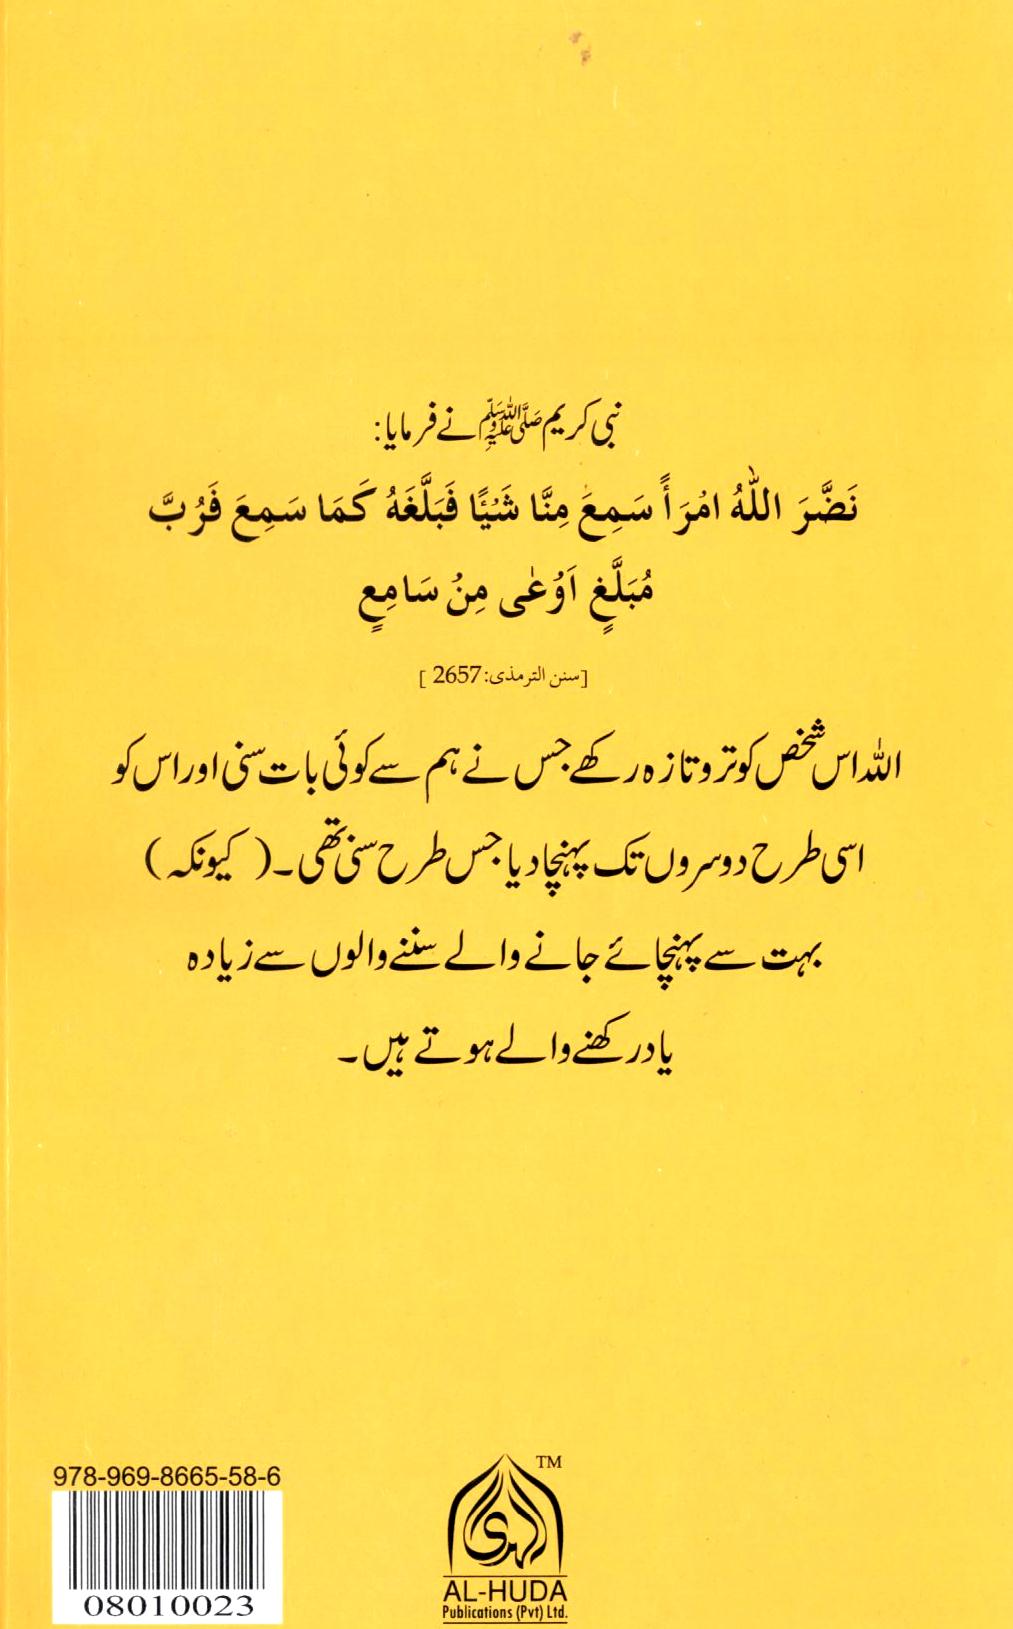 نبی کریم ﷺ نے فرمایا:
نَضَّرَ اللّٰهُ امْرَأً سَمِعَ مِنَّا شَیْئًا فَبَلَّغَهُ كَمَا سَمِعَ فَرُبَّ
مُبَلَّغٍ اَوْعٰی مِنْ سَامِعٍ
[سنن الترمذی: 2657]
اللہ اس شخص کو تروتازہ رکھے جس نے ہم سے کوئی بات سنی اور اس کو
اسی طرح دوسروں تک پہنچا دیا جس طرح سنی تھی۔ (کیونکہ)
بہت سے پہنچائے جانے والے سننے والوں سے زیادہ
یاد رکھنے والے ہوتے ہیں۔
978-969-8665-58-6
08010023
TM
الہدی
AL-HUDA
Publications (Pvt) Ltd.